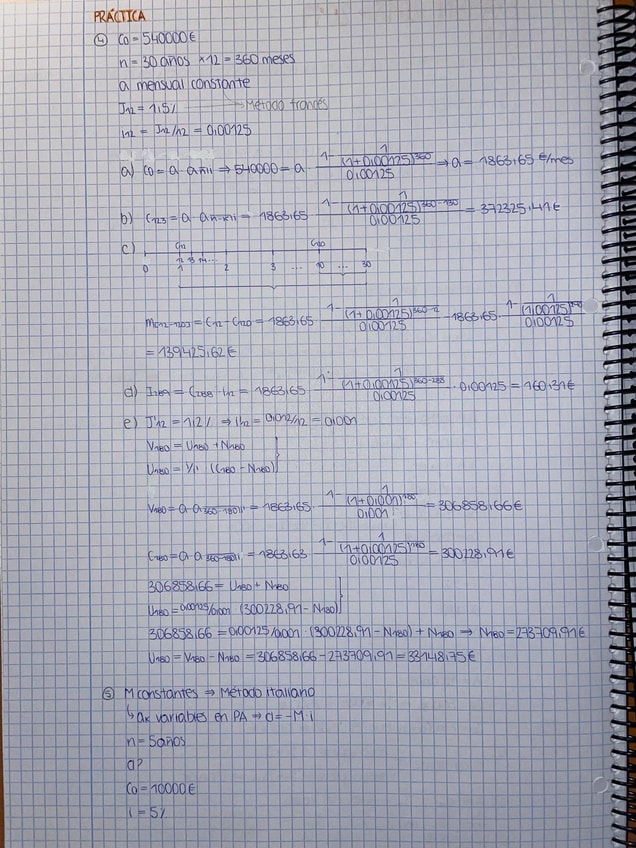 PRÁCTICA
④ C0 = 540000€
n = 30 años × 12 = 360 meses
a mensual constante
J12 = 1,5% → Método francés
i12 = J12/12 = 0,00125
a) C0 = a · a n̅|i ⇒ 540000 = a · (1 - 1/(1+0,00125)^360)/0,00125 ⇒ a = 1863,65 €/mes
b) C123 = a · a n-k|i = 1863,65 · (1 - 1/(1+0,00125)^360-130)/0,00125 = 372325,41€
c) C12 C120
12 13 14...
0 1 2 3 ... 10 ... 30
M(12-120) = C12 - C120 = 1863,65 · (1 - 1/(1+0,00125)^360-12)/0,00125 - 1863,65 · (1 - 1/(1,00125)^240)/0,00125
= 139425,62€
d) I289 = C288 · i12 = 1863,65 · (1 - 1/(1+0,00125)^360-288)/0,00125 · 0,00125 = 160,31€
e) J'12 = 1,2% ⇒ i'12 = 0,012/12 = 0,001
V180 = U180 + N180
U180 = i/i' (C180 - N180)
V180 = a · a 360-180|i' = 1863,65 · (1 - 1/(1+0,001)^180)/0,001 = 306858,66€
C180 = a · a 360-180|i = 1863,63 · (1 - 1/(1+0,00125)^180)/0,00125 = 300228,91€
306858,66 = U180 + N180
U180 = 0,00125/0,001 (300228,91 - N180)
306858,66 = 0,00125/0,001 · (300228,91 - N180) + N180 → N180 = 273709,91€
U180 = V180 - N180 = 306858,66 - 273709,91 = 33148,75€
⑤ M constantes ⇒ Método italiano
↳ ak variables en PA ⇒ d = -M·i
n = 5 años
a?
C0 = 10000€
i = 5%